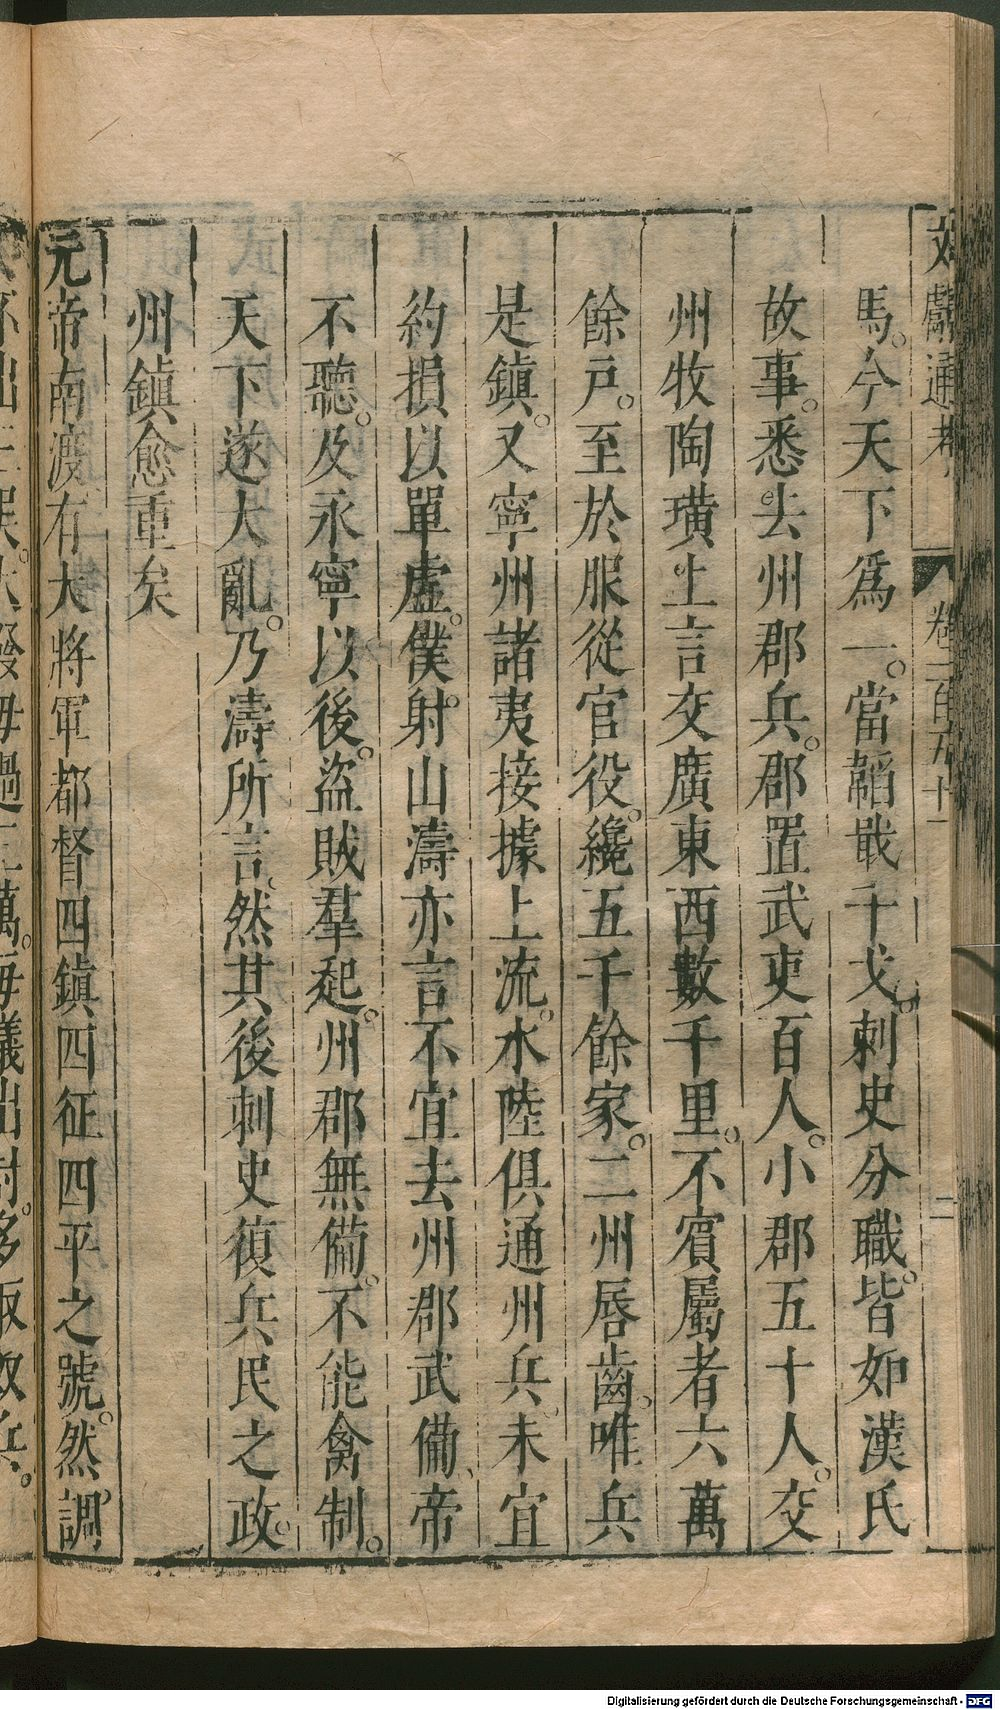 文獻通考 卷一百五十一 二
馬。今天下爲一。當韜戢干戈。刺史分職。皆如漢氏
故事。悉去州郡兵。郡置武吏百人。小郡五十人。交
州牧陶璜上言交廣東西數千里。不賔屬者六萬
餘戸。至於服從官役。纔五千餘家。二州唇齒。唯兵
是鎮。又寧州諸夷接據上流。水陸俱通州兵。未宜
約損以單虛。僕射山濤亦言不宜去州郡武備、帝
不聽。及永寧以後。盜賊羣起。州郡無備。不能禽制。
天下遂大亂。乃濤所言。然其後刺史復兵民之政。
州鎮愈重矣
元帝南渡有大將軍都督四鎮四征四平之號。然調
Digitalisierung gefördert durch die Deutsche Forschungsgemeinschaft - DFG